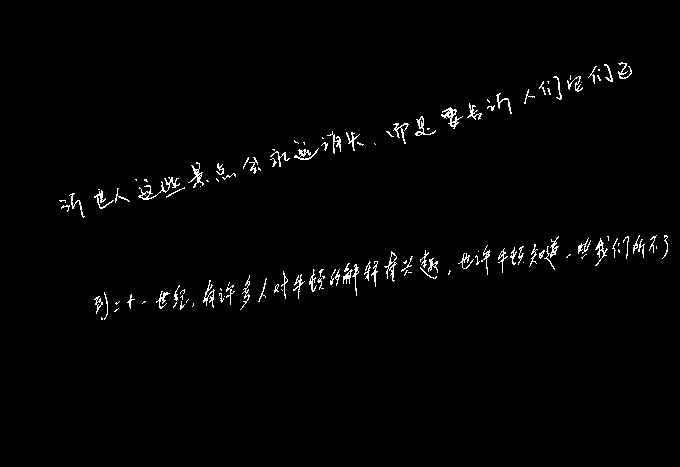 诉世人这些景点会永远消失，而是要告诉人们它们正
到二十一世纪，有许多人对牛顿的解释有兴趣，也许牛顿知道一些我们所不了